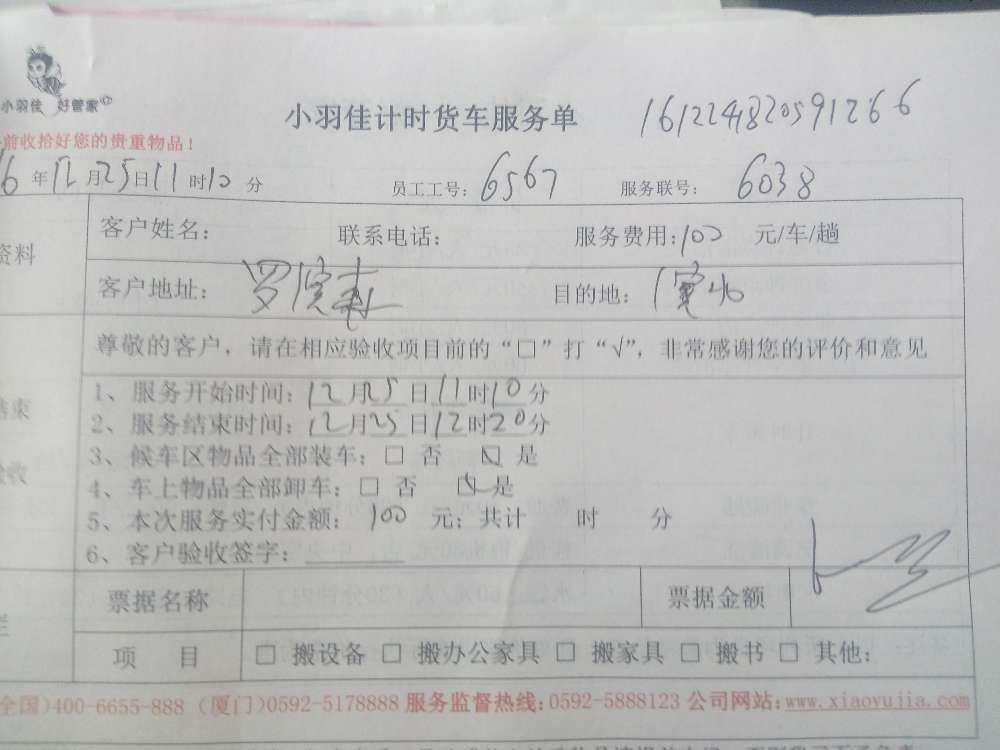 小羽佳 好管家
小羽佳计时货车服务单 161224820591266
前收拾好您的贵重物品！
6年12月25日11时10分 员工工号：6567 服务联号：6038
资料
客户姓名： 联系电话： 服务费用：100 元/车/趟
客户地址： 目的地：
尊敬的客户，请在相应验收项目前的“□”打“√”，非常感谢您的评价和意见
结束
验收
1、服务开始时间：12月25日11时10分
2、服务结束时间：12月25日12时20分
3、候车区物品全部装车：□ 否 ☑ 是
4、车上物品全部卸车：□ 否 ☑ 是
5、本次服务实付金额：100 元；共计 时 分
6、客户验收签字：
票据名称 票据金额
项 目 □ 搬设备 □ 搬办公家具 □ 搬家具 □ 搬书 □ 其他：
全国)400-6655-888 (厦门)0592-5178888 服务监督热线：0592-5888123 公司网站：www.xiaoyujia.com